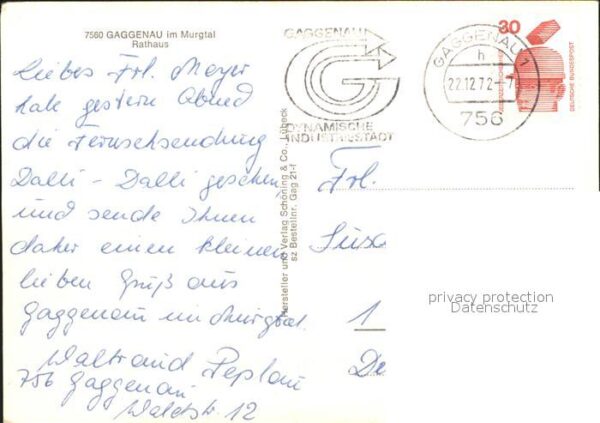 7560 GAGGENAU im Murgtal
Rathaus
Liebes Frl. Meyer
habe gestern Abend
die Fernsehsendung
Dalli - Dalli gesehen,
und sende Ihnen
daher einen kleinen
lieben Gruß aus
Gaggenau im Murgtal.
Waltraud Peplau
756 Gaggenau
Waldstr. 12
Hersteller und Verlag Schöning & Co., Lübeck
sz Bestellnr. Gag 21-f
GAGGENAU
G
DYNAMISCHE
INDUSTRIESTADT
GAGGENAU 1
h
22.12.72-7
756
30
DEUTSCHE BUNDESPOST
Frl.
1
privacy protection
Datenschutz